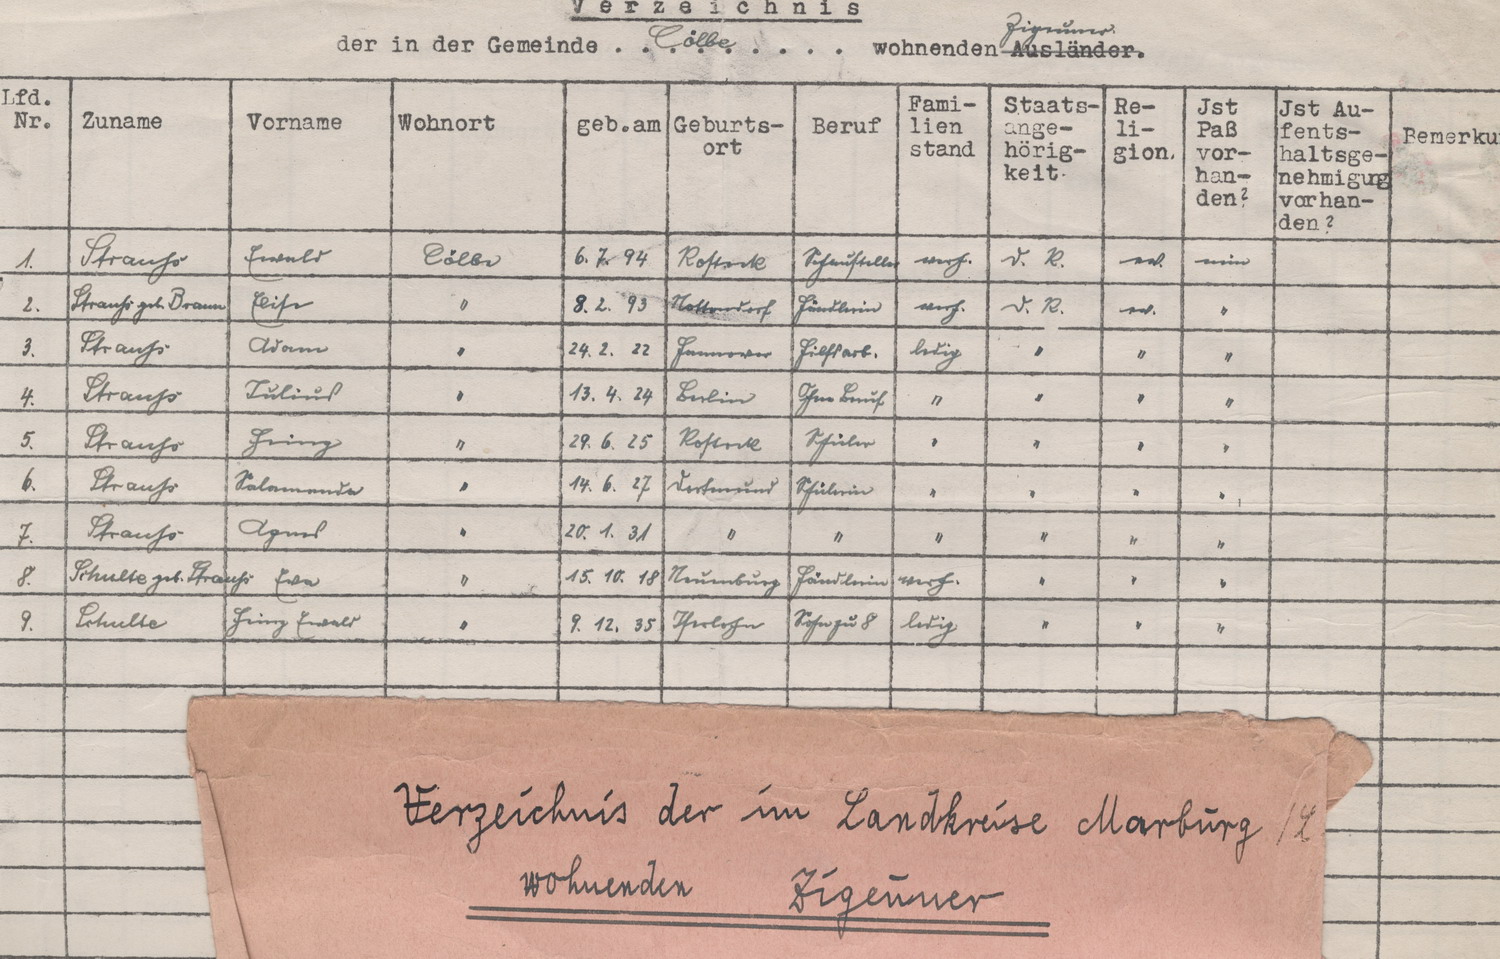 Verzeichnis
der in der Gemeinde . . Cölbe . . . . . wohnenden Zigeuner Ausländer.
Lfd. Nr. Zuname Vorname Wohnort geb.am Geburts-ort Beruf Fami-lien stand Staats-ange-hörig-keit. Re-li-gion. Jst Paß vor-han-den? Jst Au-fents-haltsge-nehmigung vorhan-den? Bemerku
1. Strauhs Ewald Cölbe 6. 7. 94 Rostock Schausteller verh. D. R. ev. nein
2. Strauhs geb. Braun Elise " 8. 2. 93 Händlerin verh. D. R. ev. "
3. Strauhs Adam " 24. 2. 22 Hannover Hilfsarb. ledig " " "
4. Strauhs Julius " 13. 4. 24 Berlin Ohne Beruf " " " "
5. Strauhs Heinz " 29. 6. 25 Rostock Schüler " " " "
6. Strauhs Salamanda " 14. 6. 27 Dortmund Schülerin " " " "
7. Strauhs Agnes " 20. 1. 31 " " " " " "
8. Schulte geb. Strauhs Ewa " 15. 10. 18 Händlerin verh. " " "
9. Schulte Heinz Ewald " 9. 12. 35 Iserlohn Sohn zu 8 ledig " " "
Verzeichnis der im Landkreise Marburg /L
wohnenden Zigeuner